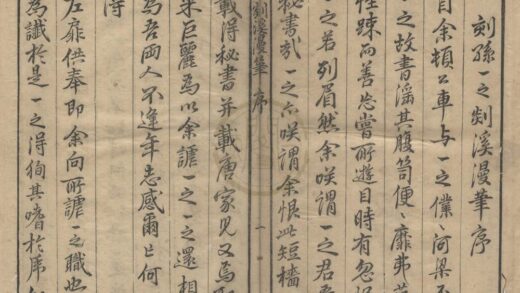 刻孫一之剡溪漫筆序
自余頓公車与一之河梁
之故書滛其腹笥便、靡弗
性踈而善忘嘗所遊目時有忽
之若列眉然余咲謂一之君
秘書一之亦咲謂余恨此短檣
剡溪漫筆 序 一
載得秘書并載唐家兒又焉
采巨麗為以余謔一之一之還相
為吾兩人不逢年志感爾已何
得
左扉供奉即余向所謔一之職也
為讖於是一之得狥其嗜於